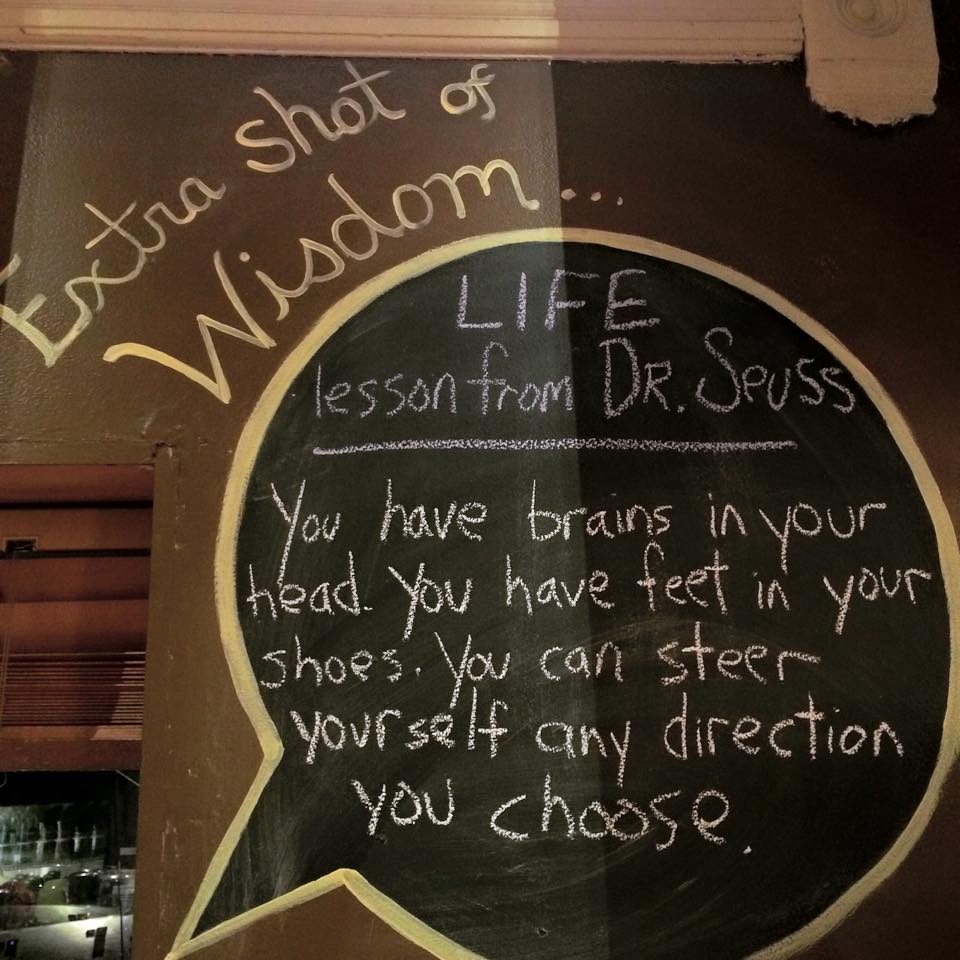 Extra Shot of
Wisdom...
LIFE
lesson from DR. Seuss
You have brains in your
head. You have feet in your
shoes. You can steer
yourself any direction
you choose.